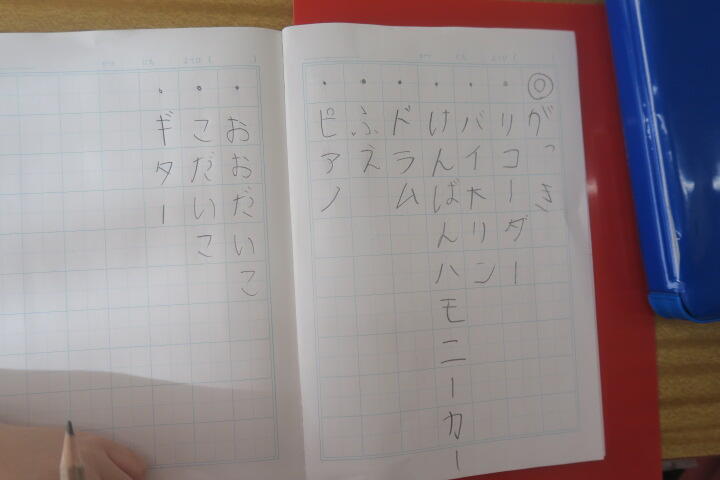 ◎がっき
・リコーダー
・バイオリン
・けんばんハモニーカー
・ドラム
・ふえ
・ピアノ
・おおだいこ
・こだいこ
・ギター